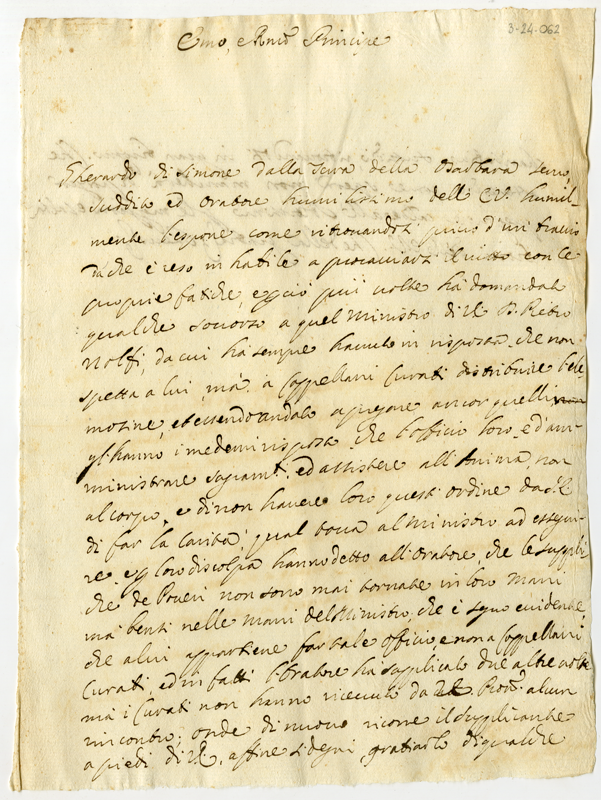 3-24-062
Emo, e Rmo Principe
Gherardo di Simone dalla Scura della Barbara servo,
suddito ed oratore humilissimo dell' E.V. humil-
mente l'espone come ritrovandosi privo d'un braccio
che è reso inhabile a procacciarsi il vitto con le
proprie fatiche, e perciò più volte ha domandato
qualche soccorso a quel Ministro di V.E. P. Pietro
Nolfi, da cui ha sempre havuto in risposta che non
spetta a lui, mà à Cappellani Curati distribuire l'ele-
mosine, et essendo andato a pregare ancor quelli
gl'hanno i medemi risposto che l'offitio loro è d'am-
ministrare sagramti. ed assistere all'Anima, non
al corpo, e di non havere loro questi ordine da V.E.
di far la carità, qual tocca al Ministro ad esegui-
re, e p loro discolpa hanno detto all'Oratore, che le suppli-
che de Poveri non sono mai tornate in loro mani
mà bensì nelle mani del Ministro, che è segno evidente,
che a lui appartiene far tale offitio, e non a Cappellani
Curati, ed in fatti l'Oratore hà supplicato due altre volte
mà i Curati non hanno ricevuto da V.E. alcun
rincontro: onde di nuovo ricorre il supplicante
a piedi di V.E. affine si degni gratiarlo di qualche